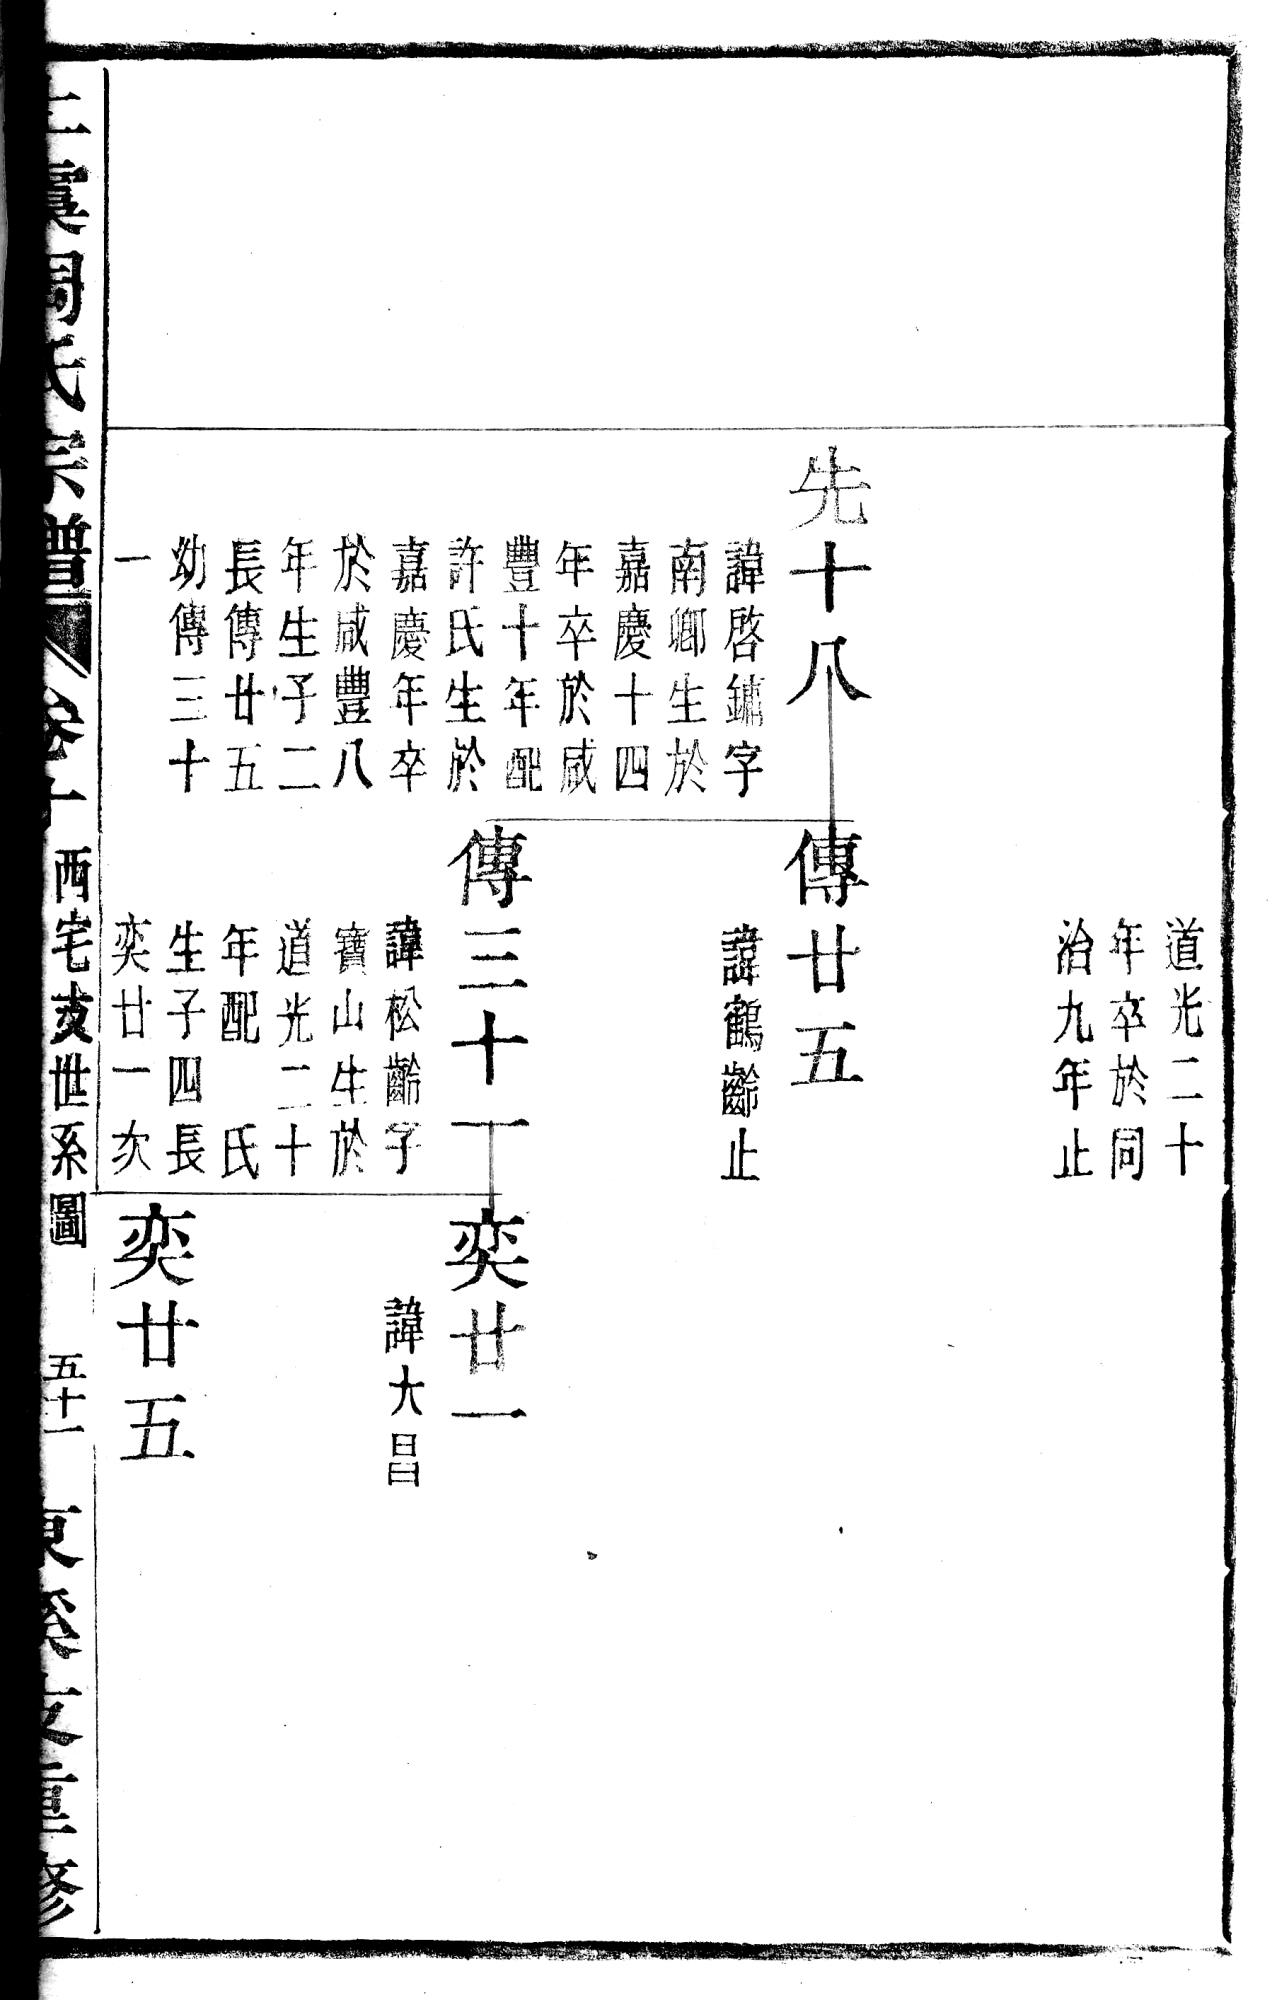 道光二十
年卒於同
治九年止
先十八
諱啓鏽字
南鄉生於
嘉慶十四
年卒於咸
豐十年配
許氏生於
嘉慶年卒
於咸豐八
年生子二
長傳廿五
幼傳三十
一
傳廿五
諱鶴齡止
傳三十一
諱松齡字
寶山生於
道光二十
年配　氏
生子四長
奕廿一次
奕廿一
諱大昌
奕廿五
上虞周氏宗譜
卷十
西宅支世系圖
五十一
東溪支重修